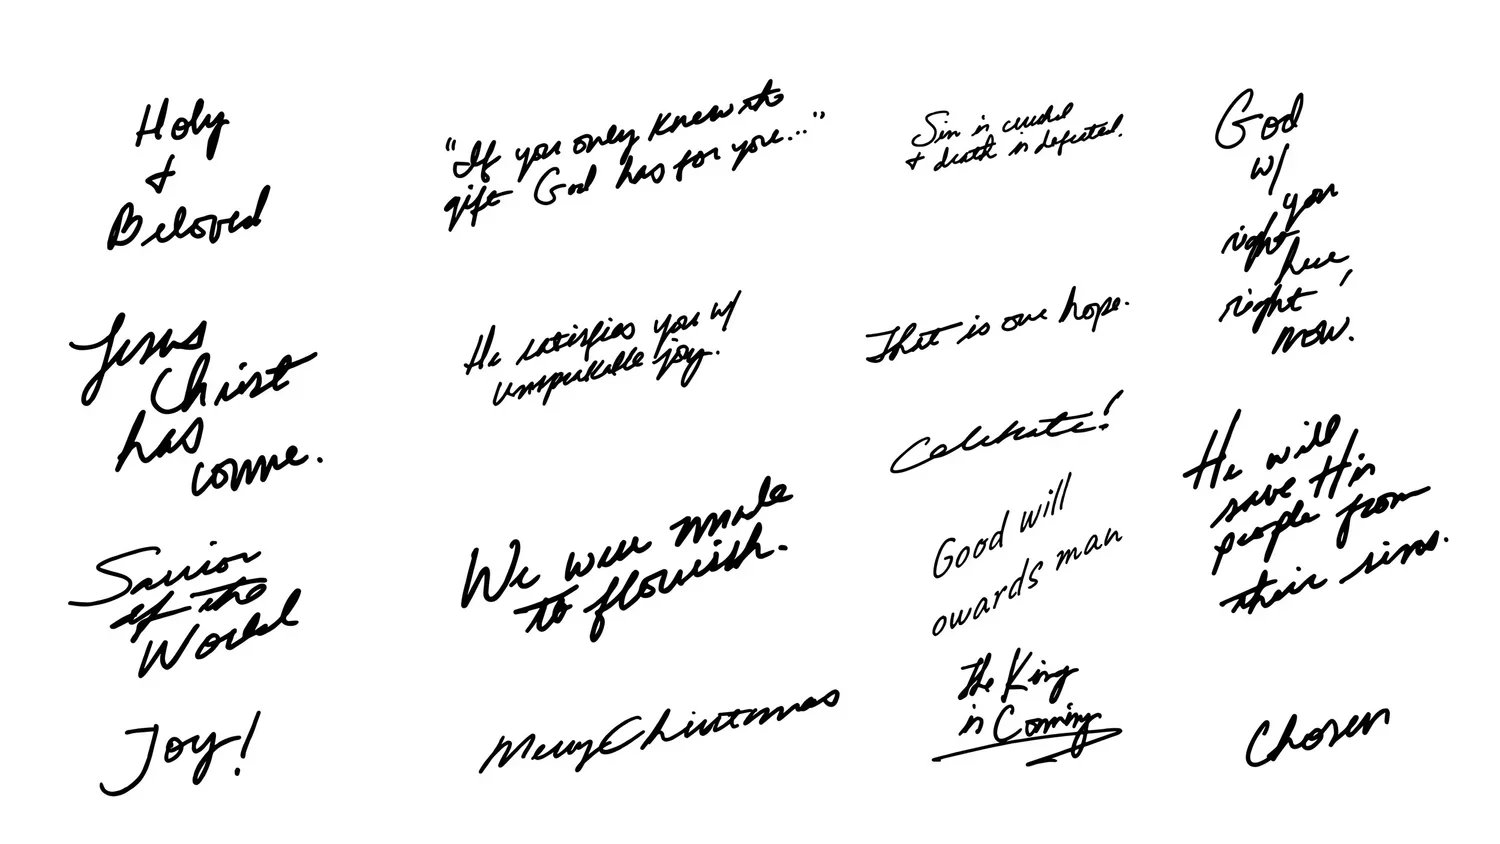 Holy
+
Beloved
Jesus
Christ
has
come.
Savior
of the
World
Joy!
"If you only knew the
gift God has for you..."
He satisfies you w/
unspeakable joy.
We were made
to flourish.
Merry Christmas
Sin is crushed
+ death is defeated.
That is our hope.
Celebrate!
Good will
owards man
The King
is Coming
God
w/
you
right
here,
right
now.
He will
save His
people from
their sins.
Chosen